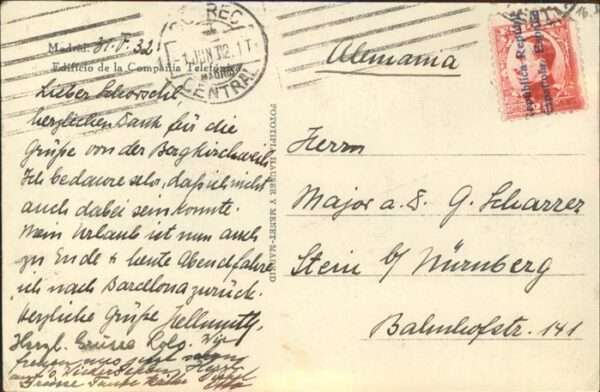 Madrid: 31.V.32.
Edificio de la Compañía Telefónica
CORREO
1 JUN 32 1T
MADRID
CENTRAL
Alemania
República Española
Lieber Schorschl,
herzlichen Dank für die
Grüße von der Bergkirchweih
Ich bedaure sehr, daß ich nicht
auch dabei sein konnte.
Mein Urlaub ist nun auch
zu Ende & heute Abend fahre
ich nach Barcelona zurück.
Herzliche Grüße Hellmuth,
Herzl. Grüsse
Wir
freuen uns
auf's Wiedersehen
Grüsse
FOTOTIPIA HAUSER Y MENET-MADRID
Herrn
Major a.D. G. Scharrer
Stein b/ Nürnberg
Bahnhofstr. 141